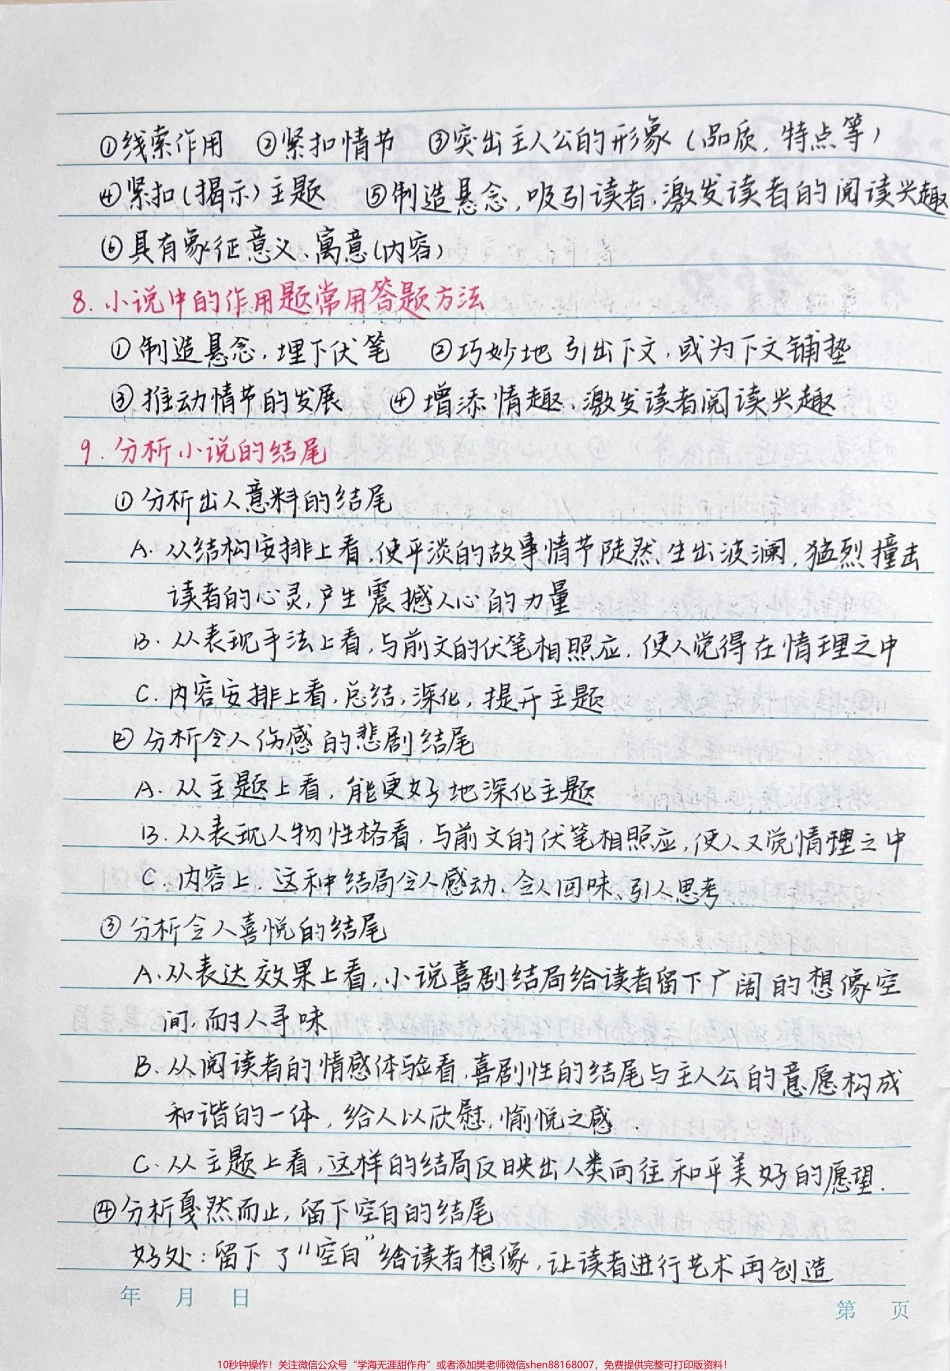 ①线索作用 ②紧扣情节 ③突出主人公的形象(品质,特点等)
④紧扣(揭示)主题 ⑤制造悬念,吸引读者,激发读者的阅读兴趣
⑥具有象征意义、寓意(内容)
8.小说中的作用题常用答题方法
①制造悬念,埋下伏笔 ②巧妙地引出下文,或为下文铺垫
③推动情节的发展 ④增添情趣、激发读者阅读兴趣
9.分析小说的结尾
①分析出人意料的结尾
A.从结构安排上看,使平淡的故事情节陡然生出波澜,猛烈撞击
读者的心灵,产生震撼人心的力量
B.从表现手法上看,与前文的伏笔相照应,使人觉得在情理之中
C.内容安排上看,总结,深化,提升主题
②分析令人伤感的悲剧结尾
A.从主题上看,能更好地深化主题
B.从表现人物性格看,与前文的伏笔相照应,使人又觉情理之中
C.内容上,这种结局令人感动、令人回味、引人思考
③分析令人喜悦的结尾
A.从表达效果上看,小说喜剧结局给读者留下广阔的想像空
间,耐人寻味
B.从阅读者的情感体验看,喜剧性的结尾与主人公的意愿构成
和谐的一体,给人以欣慰,愉悦之感
C.从主题上看,这样的结局反映出人类向往和平美好的愿望.
④分析戛然而止,留下空白的结尾
好处:留下了“空白”给读者想像,让读者进行艺术再创造
年 月 日
第 页
10秒钟操作!关注微信公众号“学海无涯甜作舟”或者添加樊老师微信shen88168007,免费提供完整可打印版资料!